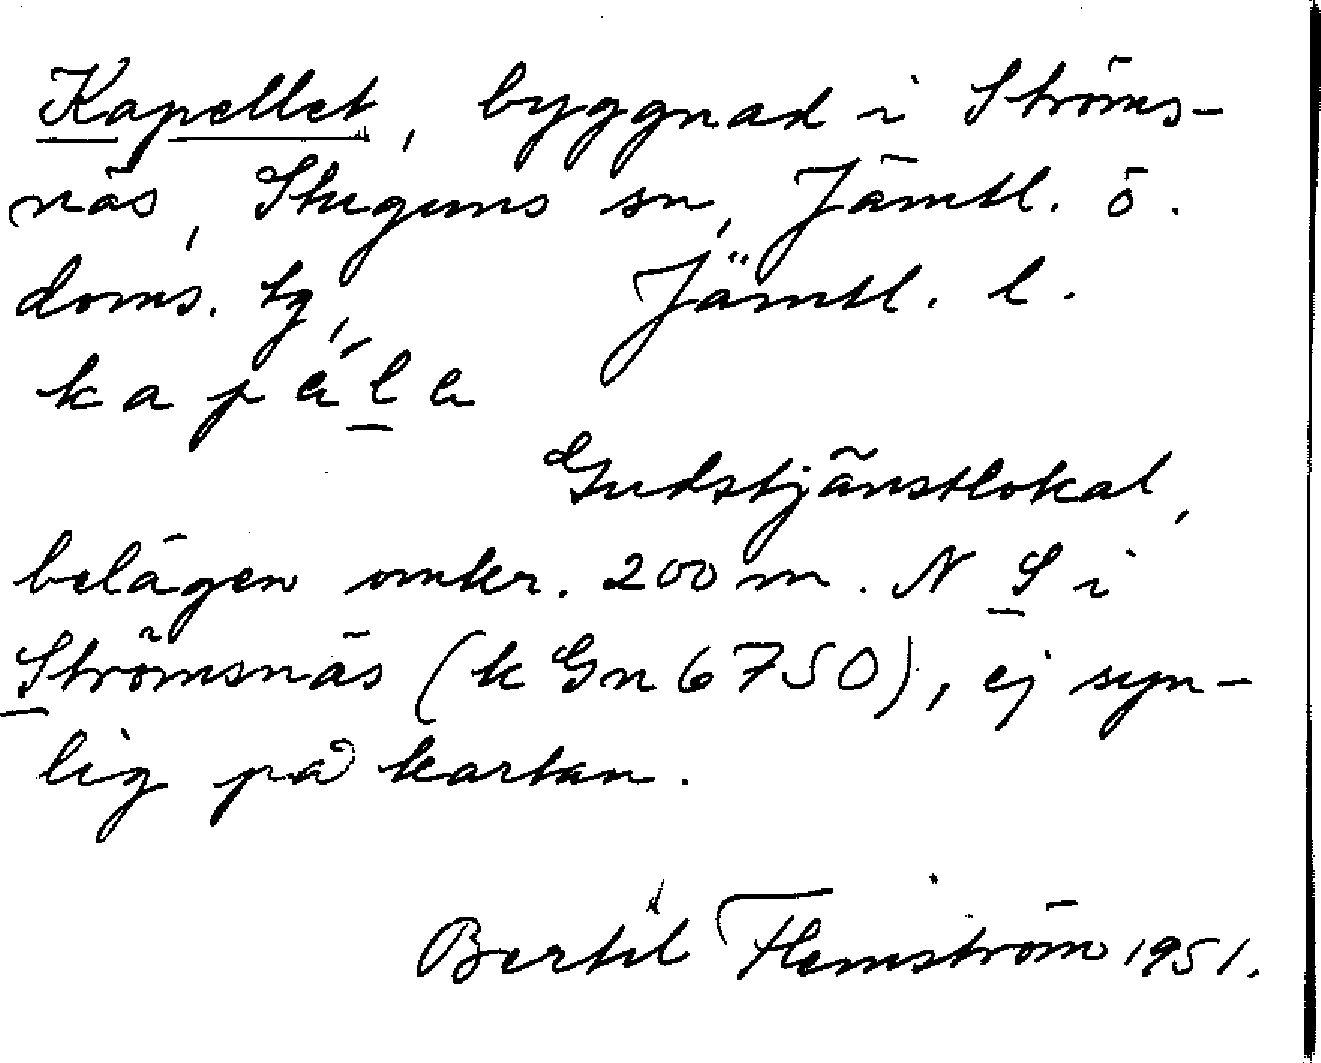 Kapellet, byggnad i Ströms-
näs, Stuguns sn, Jämtl. ö.
doms. tg, Jämtl. l.
kapäla
Gudstjänstlokal,
belägen omkr. 200 m. N S i
Strömsnäs (k Gn 6750), ej syn-
lig på kartan.
Bertil Flemström 1951.